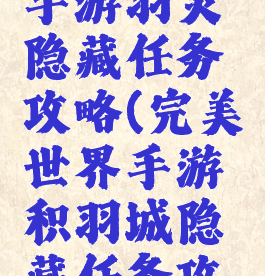 手游羽灵
隐藏任务
攻略(完美
世界手游
积羽城隐
藏任务攻